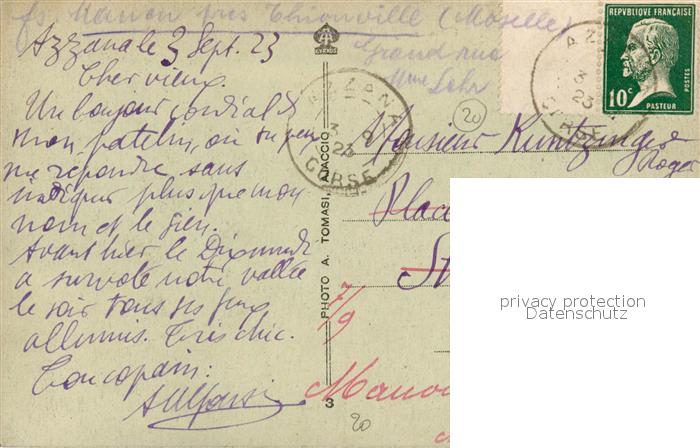 fg. Manom près Thionville (Moselle)
Grand'rue
Mme Lehr
Azzana le 3 Sept. 23
Cher vieux,
Un bonjour cordial de
mon patelin, où tu peux
me répondre sans
indiquer plus que mon
nom et le sien.
Avant hier le Dixmude
a survolé notre vallée
le soir tous ses feux
allumés. Très chic.
Ton copain:
AZZANA
3 9
23
CORSE
20
PHOTO A. TOMASI, AJACCIO
3
20
REPUBLIQUE FRANÇAISE
POSTES
10c
PASTEUR
AZ
3
23
CORSE
Monsieur Kuntzinger
Roger
Place
St
7/9
Mano
privacy protection
Datenschutz